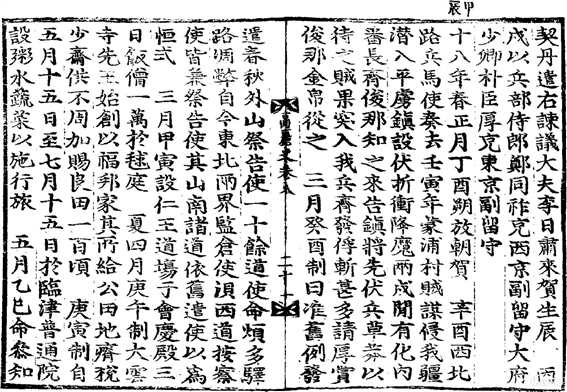 甲辰
契丹遣右諫議大夫李日肅來賀生辰　丙
戌以兵部侍郎鄭同祚充西京副留守大府
少卿朴臣厚充東京副留守
十八年春正月丁酉朔放朝賀　辛酉西北
路兵馬使奏去壬寅年蒙浦村賊謀侵我疆
潛入平虜鎭設伏折衝降魔兩戍間有化內
蕃長齊俊那知之來告鎭將先伏兵草莽以
待之賊果突入我兵齊發俘斬甚多請厚賞
俊那金帛從之　三月癸酉制曰准舊例發
高麗史卷八　二十一
遣春秋外山祭告使一十餘道使命煩多驛
路凋弊自今東北兩界監倉使浿西道按察
使皆兼祭告使其山南諸道依舊遣使以爲
恒式　三月甲寅設仁王道場于會慶殿三
日飯僧一萬於毬庭　夏四月庚午制大雲
寺先王始創以福邦家其所給公田地瘠稅
少齋供不周加賜良田一百頃　庚寅制自
五月十五日至七月十五日於臨津普通院
設粥水蔬菜以施行旅　五月乙巳命參知